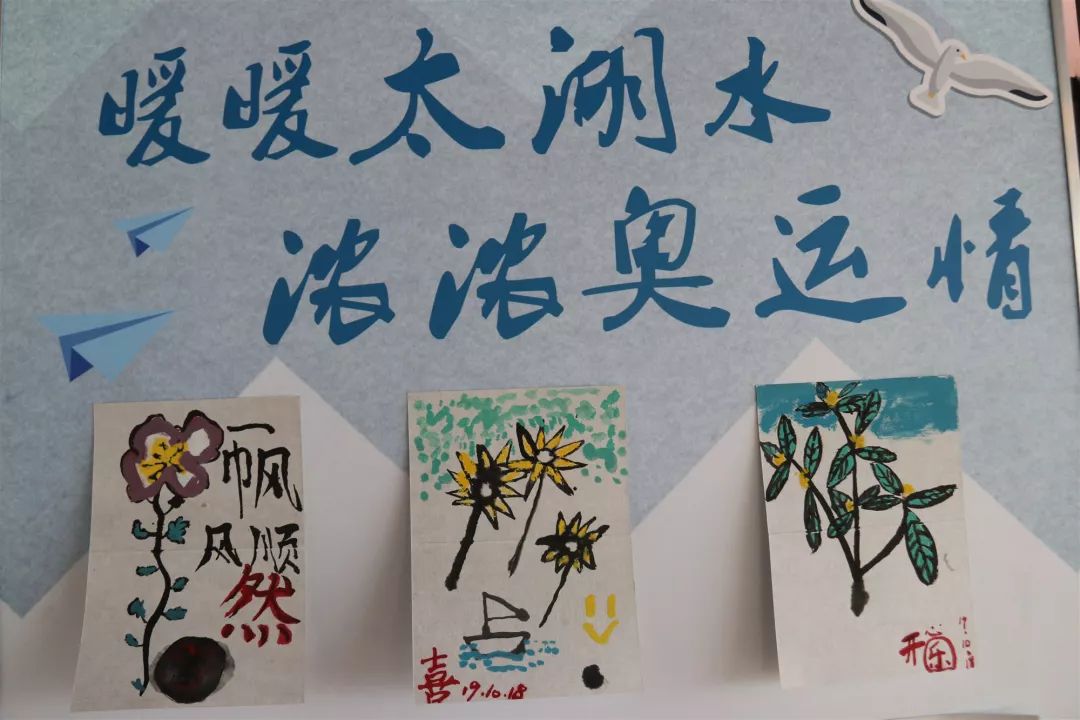 暖暖太湖水
浓浓奥运情
一帆
风顺
然
喜 19.10.18
开